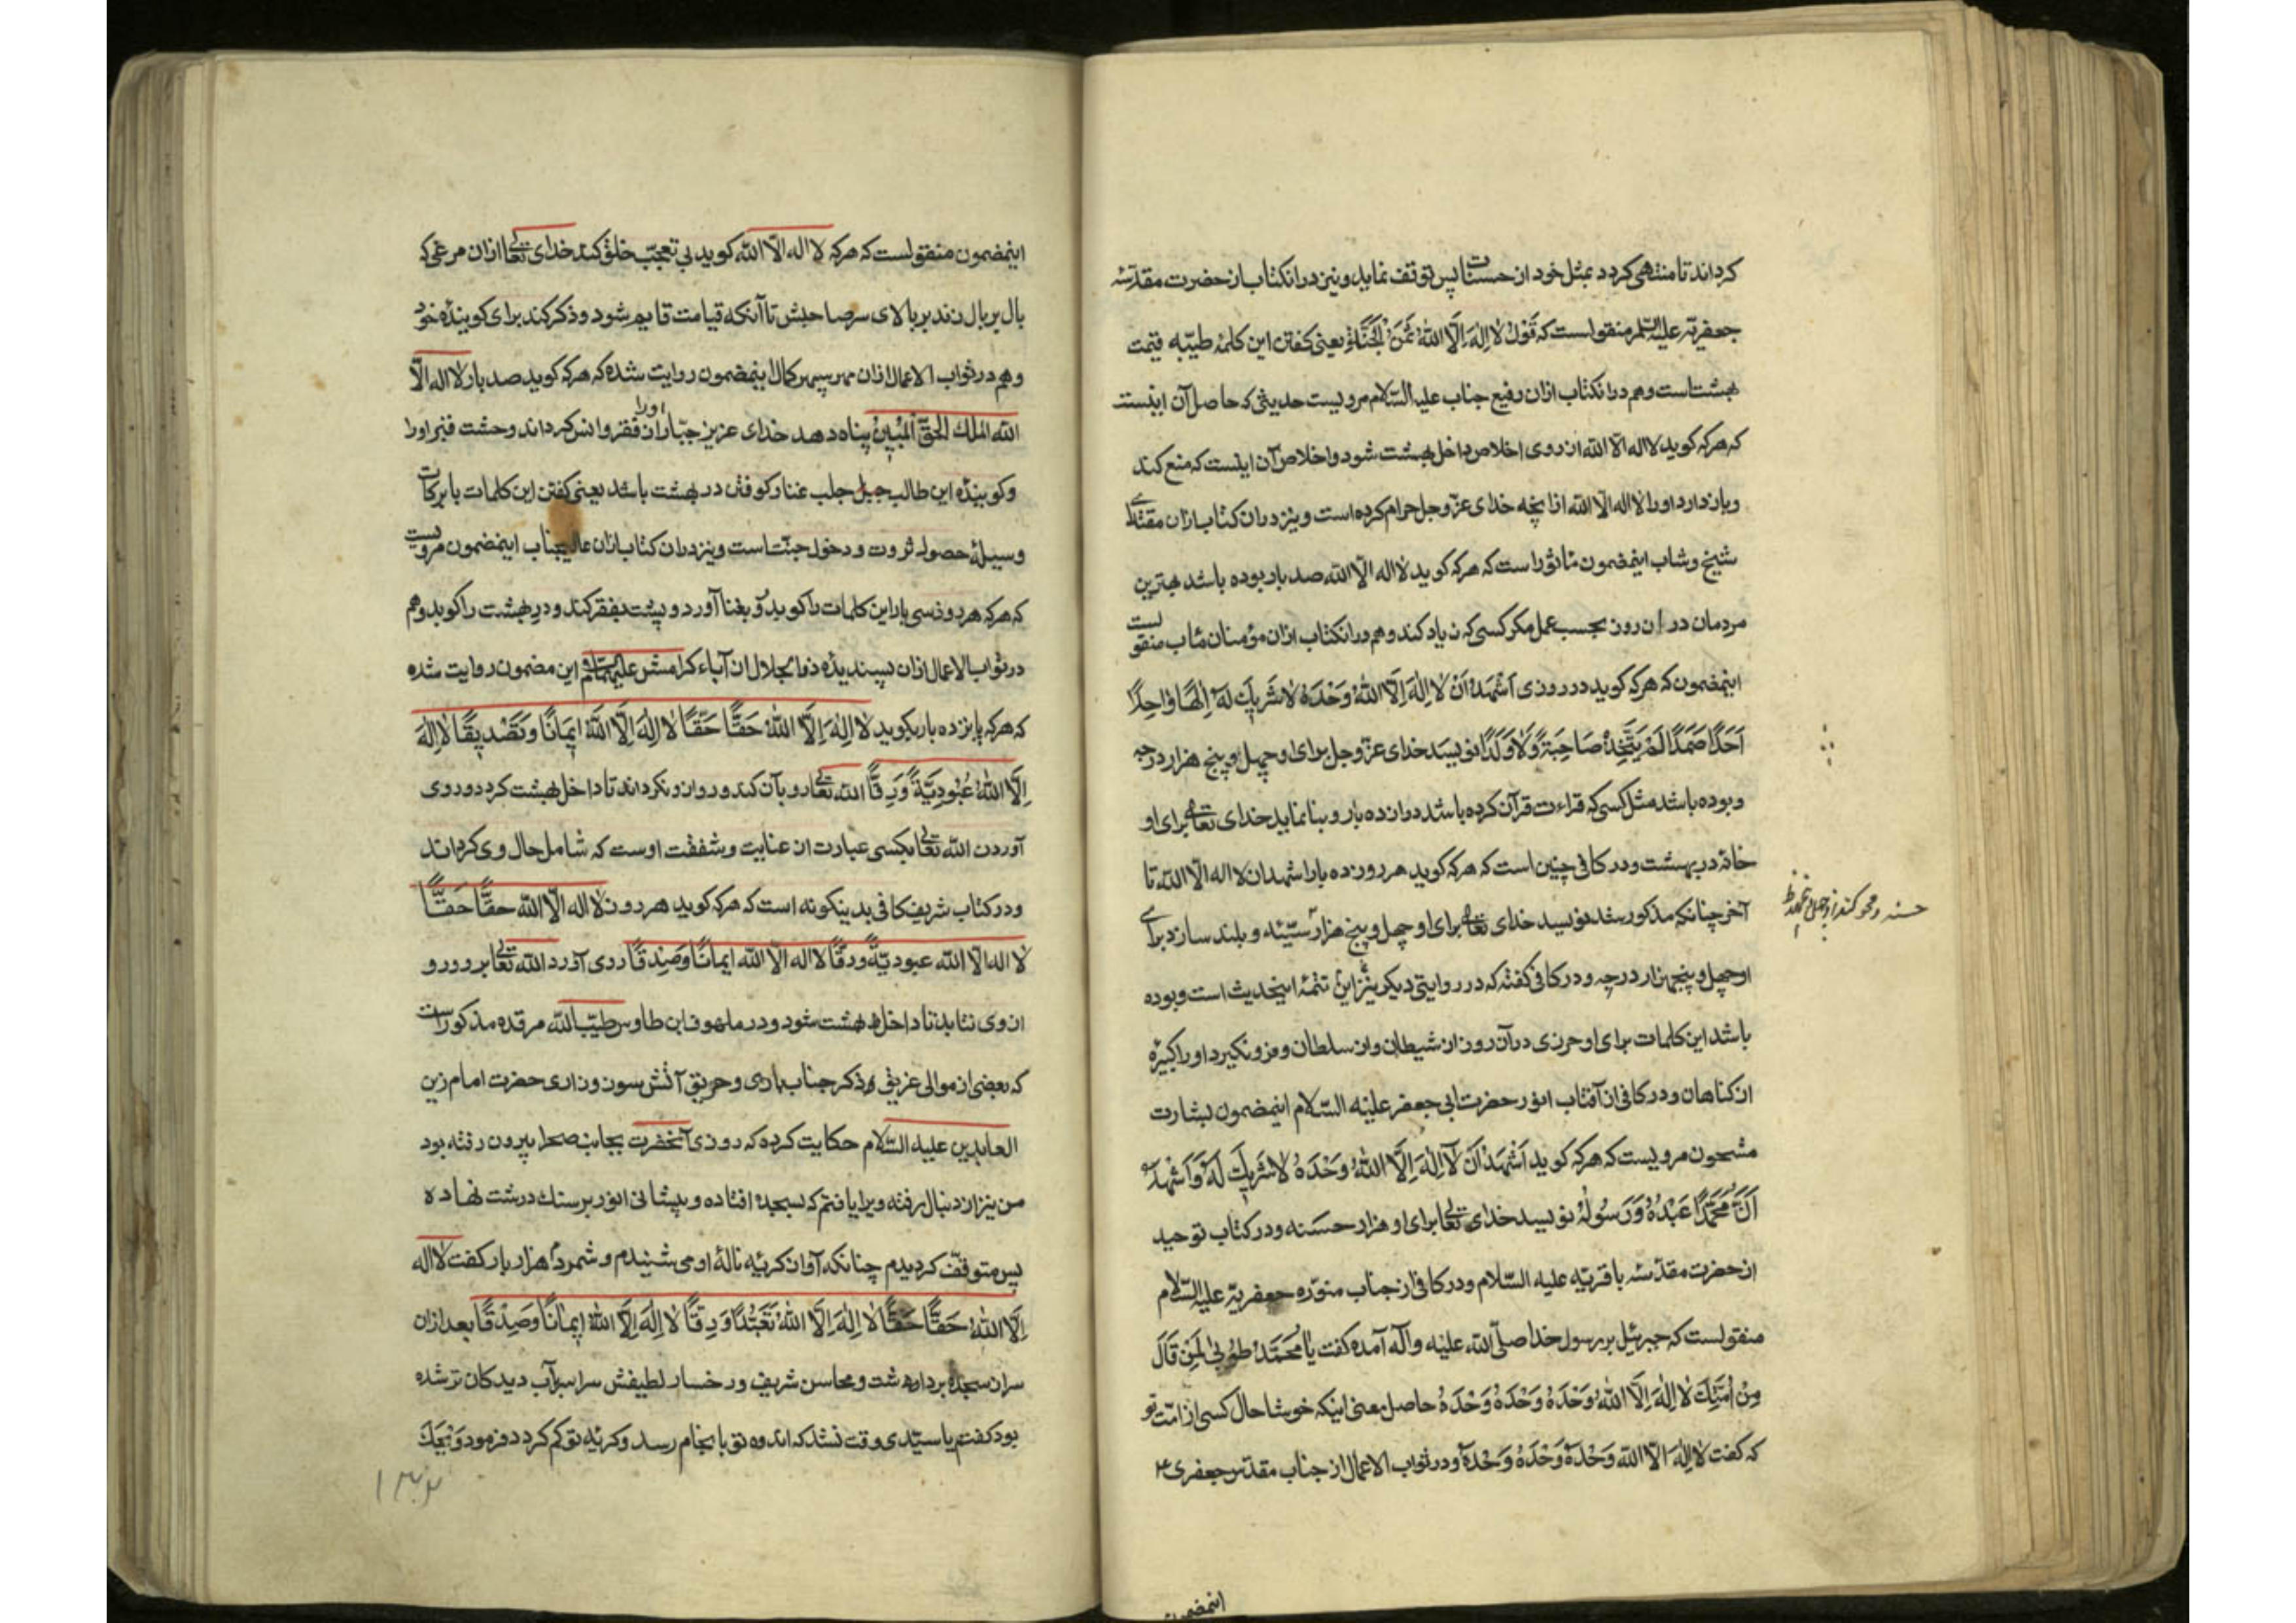 کرداند تا منتهی کردد بمثل خود از حسنات پس توقف نماید و نیز در انکتاب از حضرت مقدّسه
جعفریّه علیه السّلم منقولست که قَوْلُ لَا اِلٰهَ اِلَّا اللّٰهُ ثَمَنُ الْجَنَّةِ یعنی کفتن این کلمهٔ طیّبه قیمت
بهشتست و هم در انکتاب ازان رفیع جناب علیه السّلام مرویست حدیثی که حاصل آن اینست
که هرکه کوید لا اله الّا الله از روی اخلاص داخل بهشت شود و اخلاص آن اینست که منع کند
و باز دارد او را لا اله الّا الله از انچه خدای عزّ وجل حرام کرده است و نیز در ان کتاب ازان مقتدای
شیخ و شاب اینمضمون مأثور است که هرکه کوید لا اله الّا الله صد بار بوده باشد بهترین
مردمان در ان روز بحسب عمل مکر کسی که زیاد کند و هم در انکتاب ازان مؤمنان مٱب منقولست
اینمضمون که هرکه کوید در روزی اَشْهَدُ اَنْ لَا اِلٰهَ اِلَّا اللّٰهُ وَحْدَهُ لَا شَرِیكَ لَهُ اِلٰهًا وَاحِدًا
اَحَدًا صَمَدًا لَمْ یَتَّخِذْ صَاحِبَةً وَلَا وَلَدًا نویسد خدای عزّ وجل برای او چهل و پنج هزار درجه
و بوده باشد مثل کسی که قراءت قرآن کرده باشد دوازده بار و بنا نماید خدای تعالی برای او
خانهٔ در بهشت و در کافی چنین است که هرکه کوید هر روز ده بار اشهد ان لا اله الّا الله تا
آخر چنانکه مذکور شد نویسد خدای تعالی برای او چهل و پنج هزار سیّئه و بلند سازد برای
حسنه و محو کند از
او چهل و پنجهزار درجه و در کافی کفته که در روایتی دیکر نیز این تتمّهٔ اینحدیث است و بوده
باشد این کلمات برای او حرزی در آن روز از شیطان و از سلطان و فرو نکیرد او را کبیرهٔ
از کناهان و در کافی از آفتاب انور حضرت ابی جعفر علیه السّلام اینمضمون بشارت
مشحون مرویست که هرکه کوید اَشْهَدُ اَنْ لَا اِلٰهَ اِلَّا اللّٰهُ وَحْدَهُ لَا شَرِیكَ لَهُ وَ اَشْهَدُ
اَنَّ مُحَمَّدًا عَبْدُهُ وَرَسُولُهُ نویسد خدای تعالی برای او هزار حسنه و در کتاب توحید
از حضرت مقدّسه باقریّه علیه السّلام و در کافی از جناب منوّره جعفریّه علیه السّلام
منقولست که جبرئیل بر رسول خدا صلّی الله علیه وآله آمده کفت یَا مُحَمَّدُ طُوبٰی لِمَنْ قَالَ
مِنْ اُمَّتِكَ لَا اِلٰهَ اِلَّا اللّٰهُ وَحْدَهُ وَحْدَهُ وَحْدَهُ حاصل معنی اینکه خوشا حال کسی از امّت تو
که کفت لَا اِلٰهَ اِلَّا اللّٰه وَحْدَهُ وَحْدَهُ وَحْدَهُ و در ثواب الاعمال از جناب مقدّس جعفری ع
اینمضمون
اینمضمون منقولست که هرکه لا اله الّا الله کوید بی تعجّب خلق کند خدای تعالی ازان مرغی که
بال بر بال زند بر بالای سر صاحبش تا آنکه قیامت قایم شود و ذکر کند برای کویندهٔ خود
و هم در ثواب الاعمال ازان مهر سپهر کمال اینمضمون روایت شده که هرکه کوید صد بار لا اله الّا
الله الملك الحقّ الْمُبِین پناه دهد خدای عزیز جبّار او را از فقر و انس کرداند وحشت قبر او را
و کویندهٔ این طالب جبل جلب غنا و کوفتن در بهشت باشد یعنی کفتن این کلمات با برکات
وسیلهٔ حصول ثروت و دخول جنّتست و نیز در ان کتاب ازان عالیجناب اینمضمون مرویست
که هرکه هر روز سی بار این کلمات را کوید رو بغنا آورد و پشت بفقر کند و در بهشت را کوبد و هم
در ثواب الاعمال ازان پسندیدهٔ ذو الجلال از آباء کرامش علیهم السلام این مضمون روایت شده
که هرکه پانزده بار بکوید لَا اِلٰهَ اِلَّا اللّٰهُ حَقًّا حَقًّا لَا اِلٰهَ اِلَّا اللّٰهُ اِیمَانًا وَتَصْدِیقًا لَا اِلٰهَ
اِلَّا اللّٰهُ عُبُودِیَّةً وَرِقًّا الله تعالی رو بآن کند و رو ازو نکرداند تا داخل بهشت کردد و روی
آوردن الله تعالی بکسی عبارت از عنایت و شفقت اوست که شامل حال وی کرداند
و در کتاب شریف کافی بدینکونه است که هرکه کوید هر روز لا اله الّا الله حقًّا حَقًّا
لا اله الّا الله عبودیّةً ورقًّا لا اله الّا الله ایمانًا وَصِدْقًا روی آورد الله تعالی برو و رو
از وی نتابد تا داخل بهشت شود و در ملهوف ابن طاوس طیّب الله مرقده مذکور است
که بعضی از موالی غریق ذکر جناب باری و حریق آتش سوز و زاری حضرت امام زین
العابدین علیه السّلام حکایت کرده که روزی آنحضرت بجانب صحرا بیرون رفته بود
من نیز از دنبال رفته ویرا یافتم که بسجده افتاده و پیشانی انور بر سنك درشت نهاده
پس متوقّف کردیدم چنانکه آواز کریه نالهٔ او می شنیدم و شمردم هزار بار کفت لا اله
اِلَّا اللّٰهُ حَقًّا حَقًّا لَا اِلٰهَ اِلَّا اللّٰهُ تَعَبُّدًا وَرِقًّا لَا اِلٰهَ اِلَّا اللّٰهُ اِیمَانًا وَصِدْقًا بعد ازان
سر از سجده برداشت و محاسن شریف و رخسار لطیفش سراسر بآب دیدکان تر شده
بود کفتم یا سیّدی وقت نشد که اندوه تو بانجام رسد و کریهٔ تو کم کردد فرمود وَیْحَكَ
۱۳۲